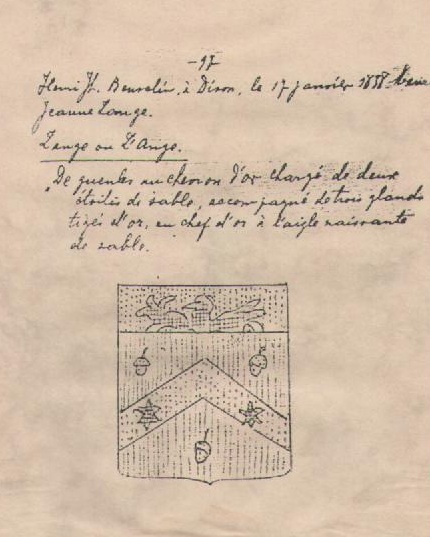 -97
Henri Jh. Beuvelin, à Dison, le 17 janvier 1858
Jeanne Lange.
Lange ou L'Ange.
De gueules au chevron d'or chargé de deux
étoiles de sable, accompagné de trois glands
tigés d'or, au chef d'or à l'aigle naissante
de sable.